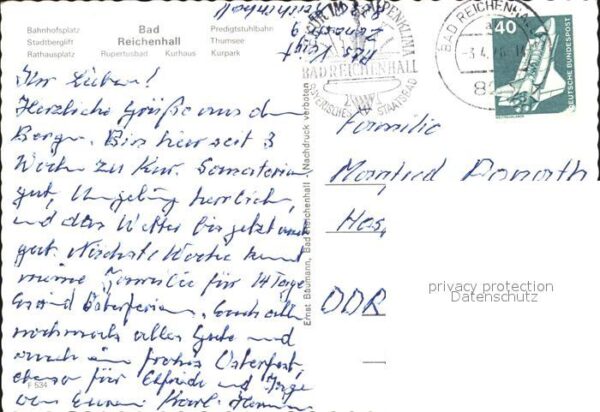 Bahnhofsplatz
Stadtberglift
Rathausplatz
Bad
Reichenhall
Rupertusbad Kurhaus
Predigtstuhlbahn
Thumsee
Kurpark
BAD REICHENHALL
STAATSBAD
BAD REICHENHALL
40
DEUTSCHE BUNDESPOST
Ihr Lieben!
Herzliche Grüße aus den
Bergen. Bin hier seit 3
Wochen zur Kur. Sanatorium
gut, Umgebung herrlich,
und das Wetter bis jetzt auch
gut. Nächste Woche kommt
meine Familie für 14 Tage
Osterferien. Euch allen
nochmals alles Gute und
auch ein frohes Osterfest,
ebenso für Elfriede und
von Eurem Karl-Hermann
Familie
Manfred Donath
DDR
Ernst Baumann, Bad Reichenhall Nachdruck verboten
F 534
privacy protection
Datenschutz